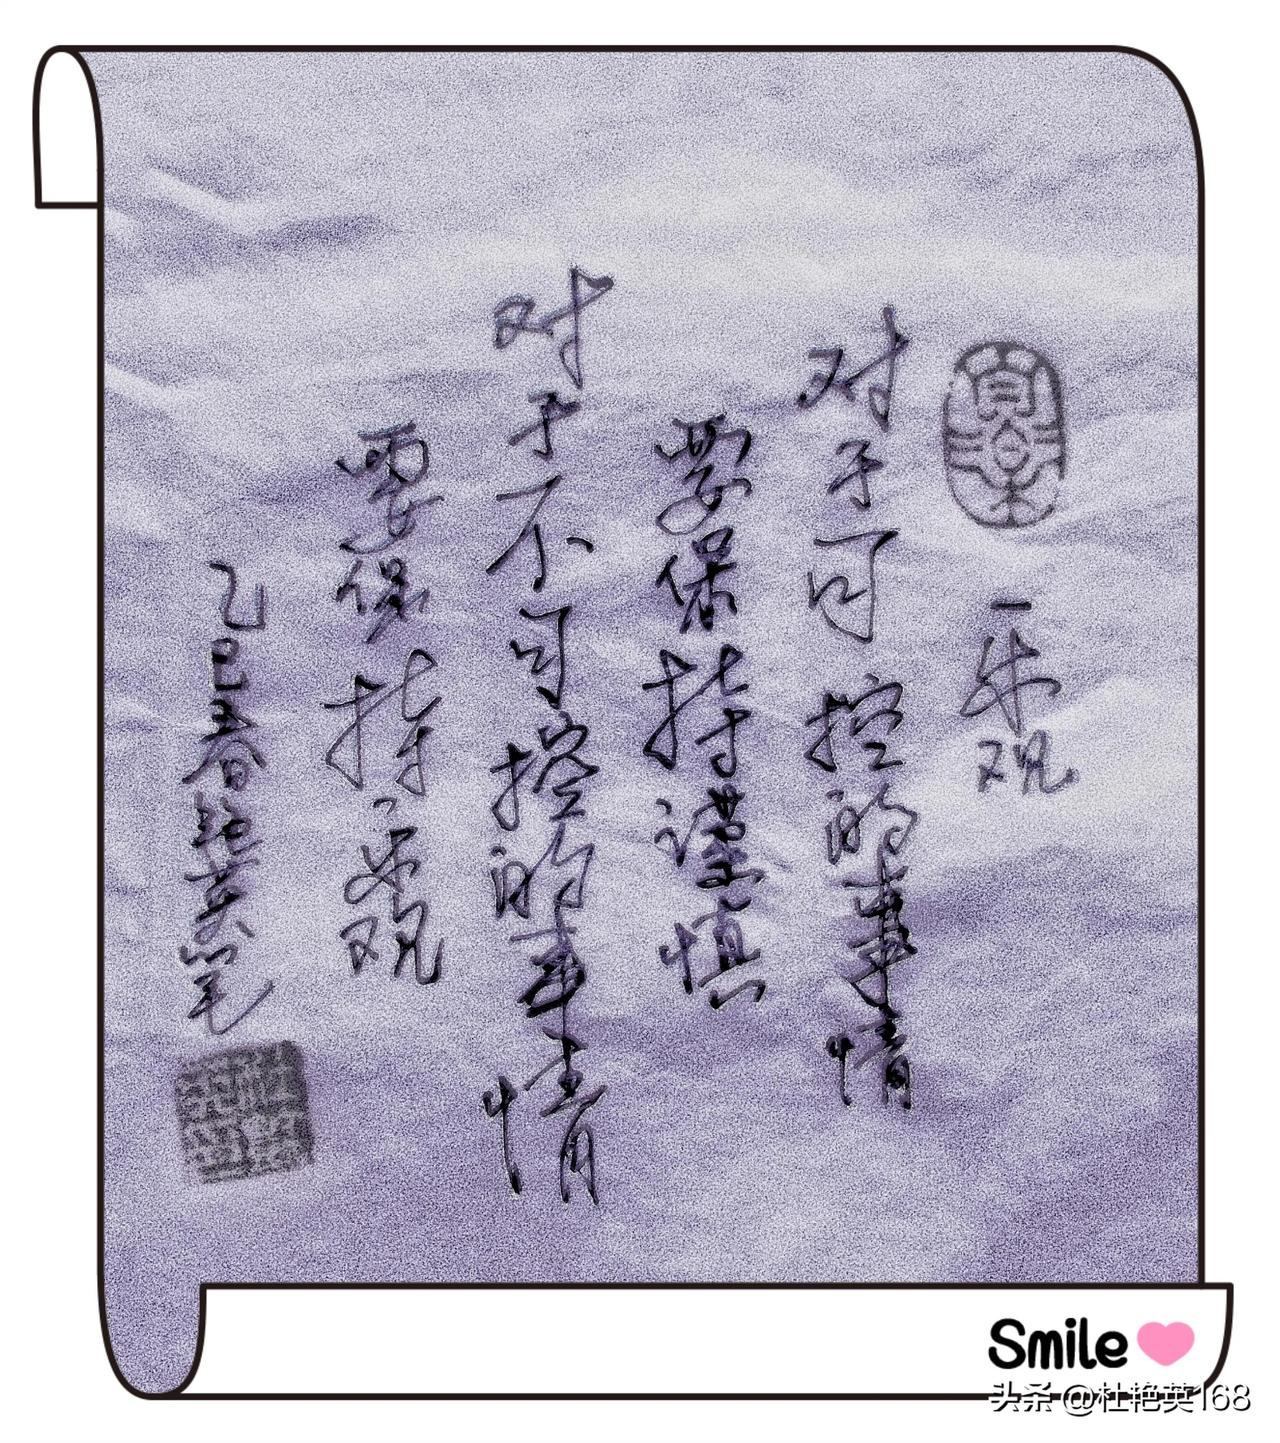 乐观
对于可控的事情
要保持谨慎
对于不可控的事情
要保持乐观
乙巳春艳英笔
Smile
头条 @杜艳英168